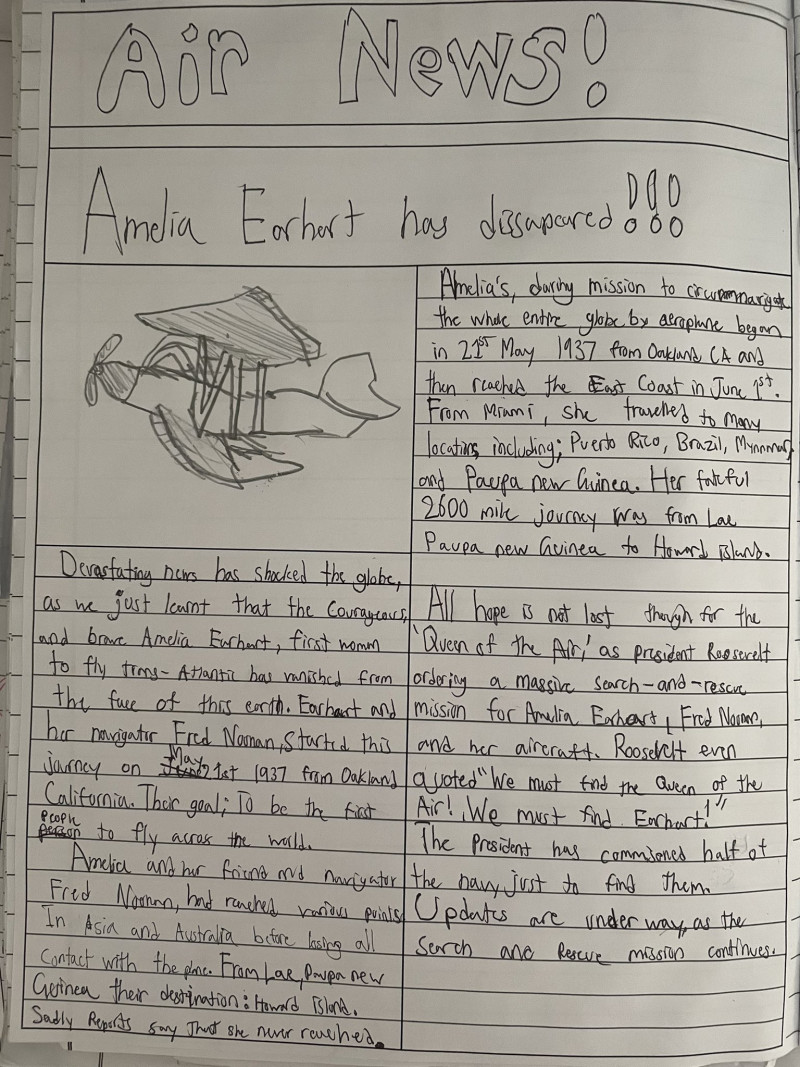 Air News!
Amelia Earhart has dissapeared!!!
Devastating news has shocked the globe,
as we just learnt that the Courageous,
and brave Amelia Earhart, first women
to fly trans-Atlantic has vanished from
the face of this earth. Earhart and
her navigator Fred Noonan, Started this
journey on May 21st 1937 from Oakland
California. Their goal; To be the first
people to fly across the world.
Amelia and her friend and navigator
Fred Noonan, had reached various points
In Asia and Australia before losing all
Contact with the plane. From Lae, Paupa new
Geuinea their destination: Howard Island.
Sadly Reports say That she never reached.
Amelia's, daring mission to circumnavigate
the whole entire globe by aeroplane began
in 21st May 1937 from Oakland CA and
then reached the East Coast in June 1st.
From Miami, she travelled to many
locations including; Puerto Rico, Brazil, Mynnmar,
and Paupa new Guinea. Her fateful
2600 mile journey was from Lae
Paupa new Geuinea to Howard Island.
All hope is not lost though for the
'Queen of the Air,' as president Roosevelt
ordering a massive search-and-rescue
mission for Amelia Earhart, Fred Noonan,
and her aircraft. Roosevelt even
quoted "We must find the Queen of the
Air! We must find Earhart!"
The President has commsioned half of
the navy, just to find them.
Updates are under way, as the
Search and Rescue mission continues.